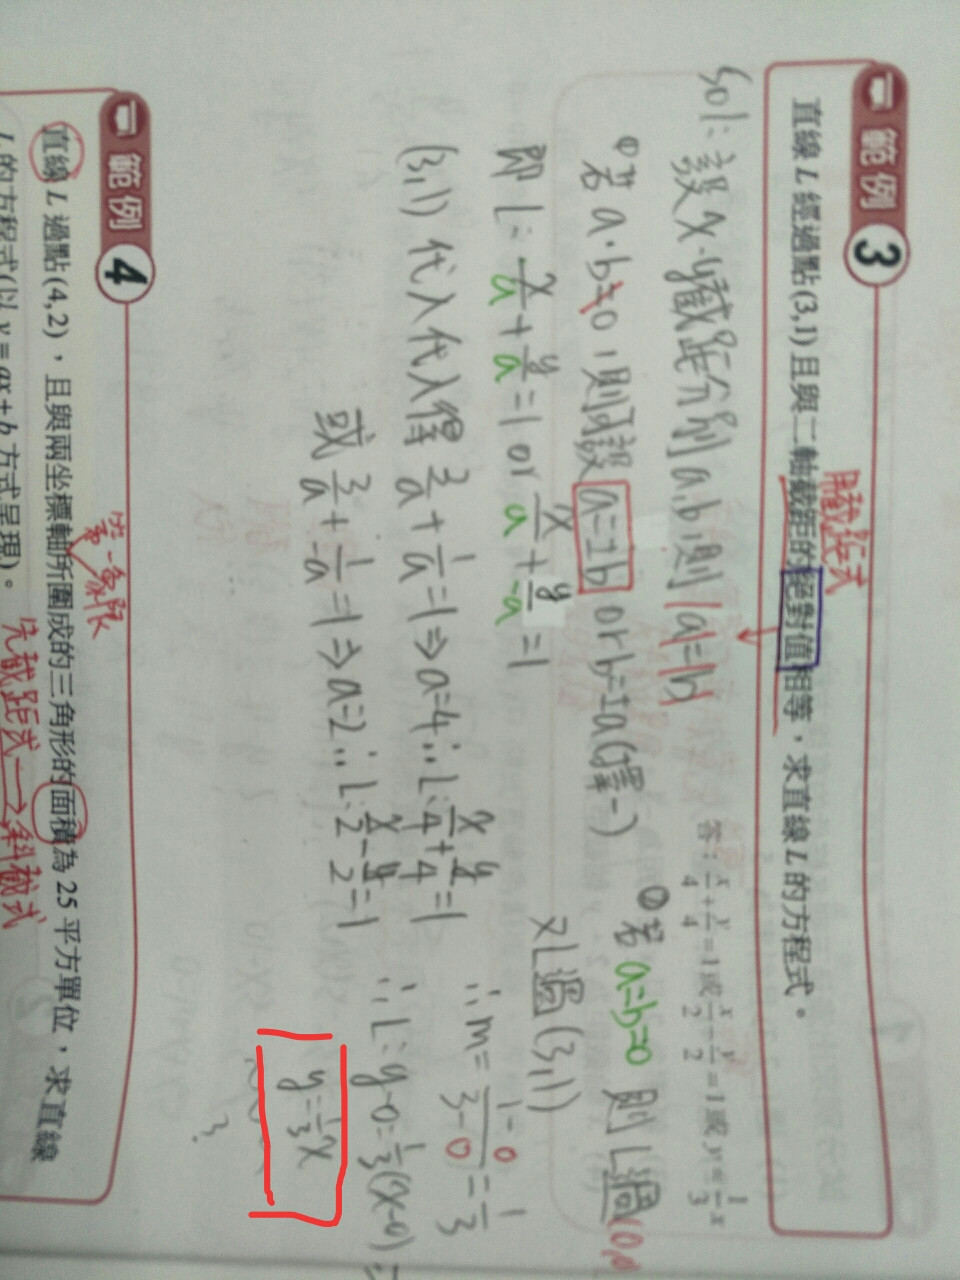 範例 3
用截距式
直線 L 經過點 (3,1) 且與二軸截距的絕對值相等，求直線 L 的方程式。
答：x/4+y/4=1 或 x/2-y/2=1 或 y=1/3x
Sol: 設x、y截距分別a,b則|a|=|b|
① 若a·b≠0，則可設a=±b or b=±a(擇一)
即L: x/a+y/a=1 or x/a+y/-a=1
(3,1)代入代入得 3/a+1/a=1⇒a=4∴L: x/4+y/4=1
或 3/a+1/-a=1⇒a=2∴L: x/2-y/2=1
② 若a=b=0 則L過(0,0)
又L過(3,1)
∴m=1-0/3-0=1/3
∴L: y-0=1/3(x-0)
y=1/3x
?
範例 4
第一象限
直線 L 過點 (4,2)，且與兩坐標軸所圍成的三角形的面積為 25 平方單位，求直線
L 的方程式(以 y=ax+b 方式呈現)。
先截距式→斜截式